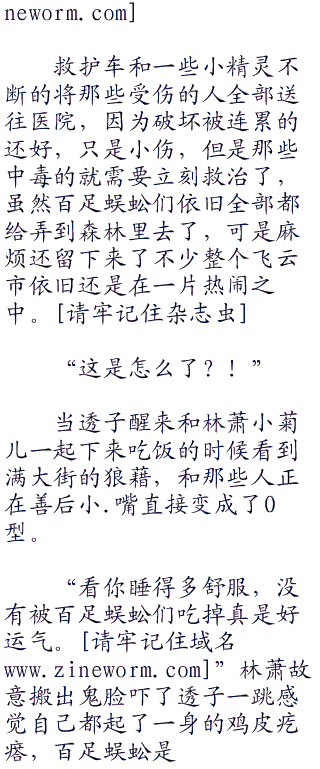 neworm.com]
救护车和一些小精灵不
断的将那些受伤的人全部送
往医院，因为破坏被连累的
还好，只是小伤，但是那些
中毒的就需要立刻救治了，
虽然百足蜈蚣们依旧全部都
给弄到森林里去了，可是麻
烦还留下来了不少整个飞云
市依旧还是在一片热闹之
中。[请牢记住杂志虫]
“这是怎么了？！”
当透子醒来和林萧小菊
儿一起下来吃饭的时候看到
满大街的狼藉，和那些人正
在善后小.嘴直接变成了O
型。
“看你睡得多舒服，没
有被百足蜈蚣们吃掉真是好
运气。[请牢记住域名
www.zineworm.com]”林萧故
意搬出鬼脸吓了透子一跳感
觉自己都起了一身的鸡皮疙
瘩，百足蜈蚣是